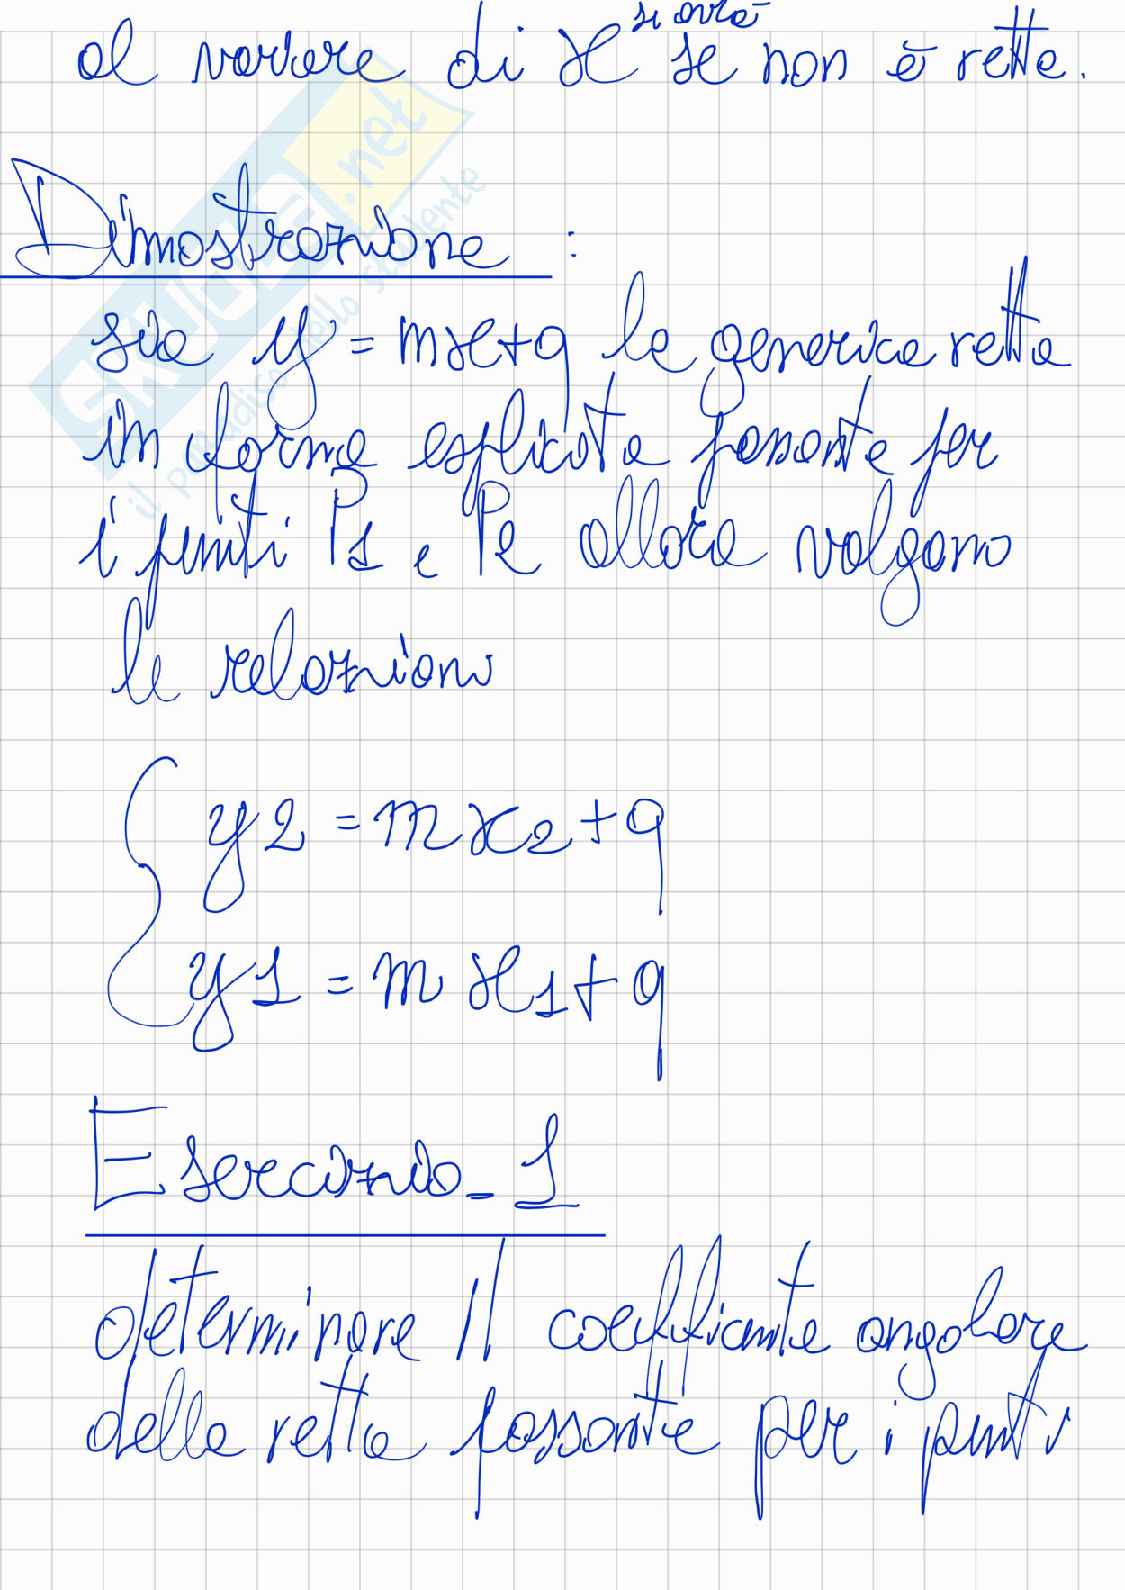 si avrà
al variare di x se non è retta.
Dimostrazione :
sia y = mx+q la generica retta
in forma esplicita passante per
i punti P1 e P2 allora valgono
le relazioni
y2 = mx2+q
y1 = mx1+q
Esercizio_1
determinare il coefficiente angolare
della retta passante per i punti
SKUOLA.net
il paradiso dello studente